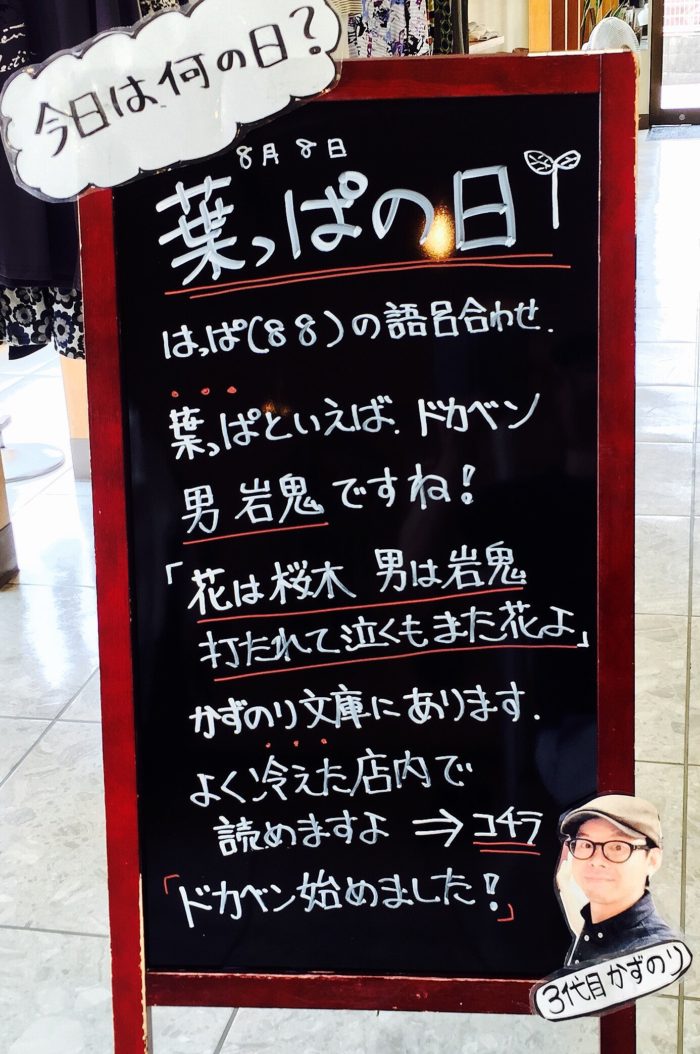 今日は何の日?
8月8日
葉っぱの日
はっぱ(88)の語呂合わせ.
葉っぱといえば.ドカベン
男 岩鬼ですね!
「花は桜木 男は岩鬼
打たれて泣くもまた花よ」
かずのり文庫にあります.
よく冷えた店内で
読めますよ ⇒コチラ
「ドカベン始めました!」
3代目かずのり